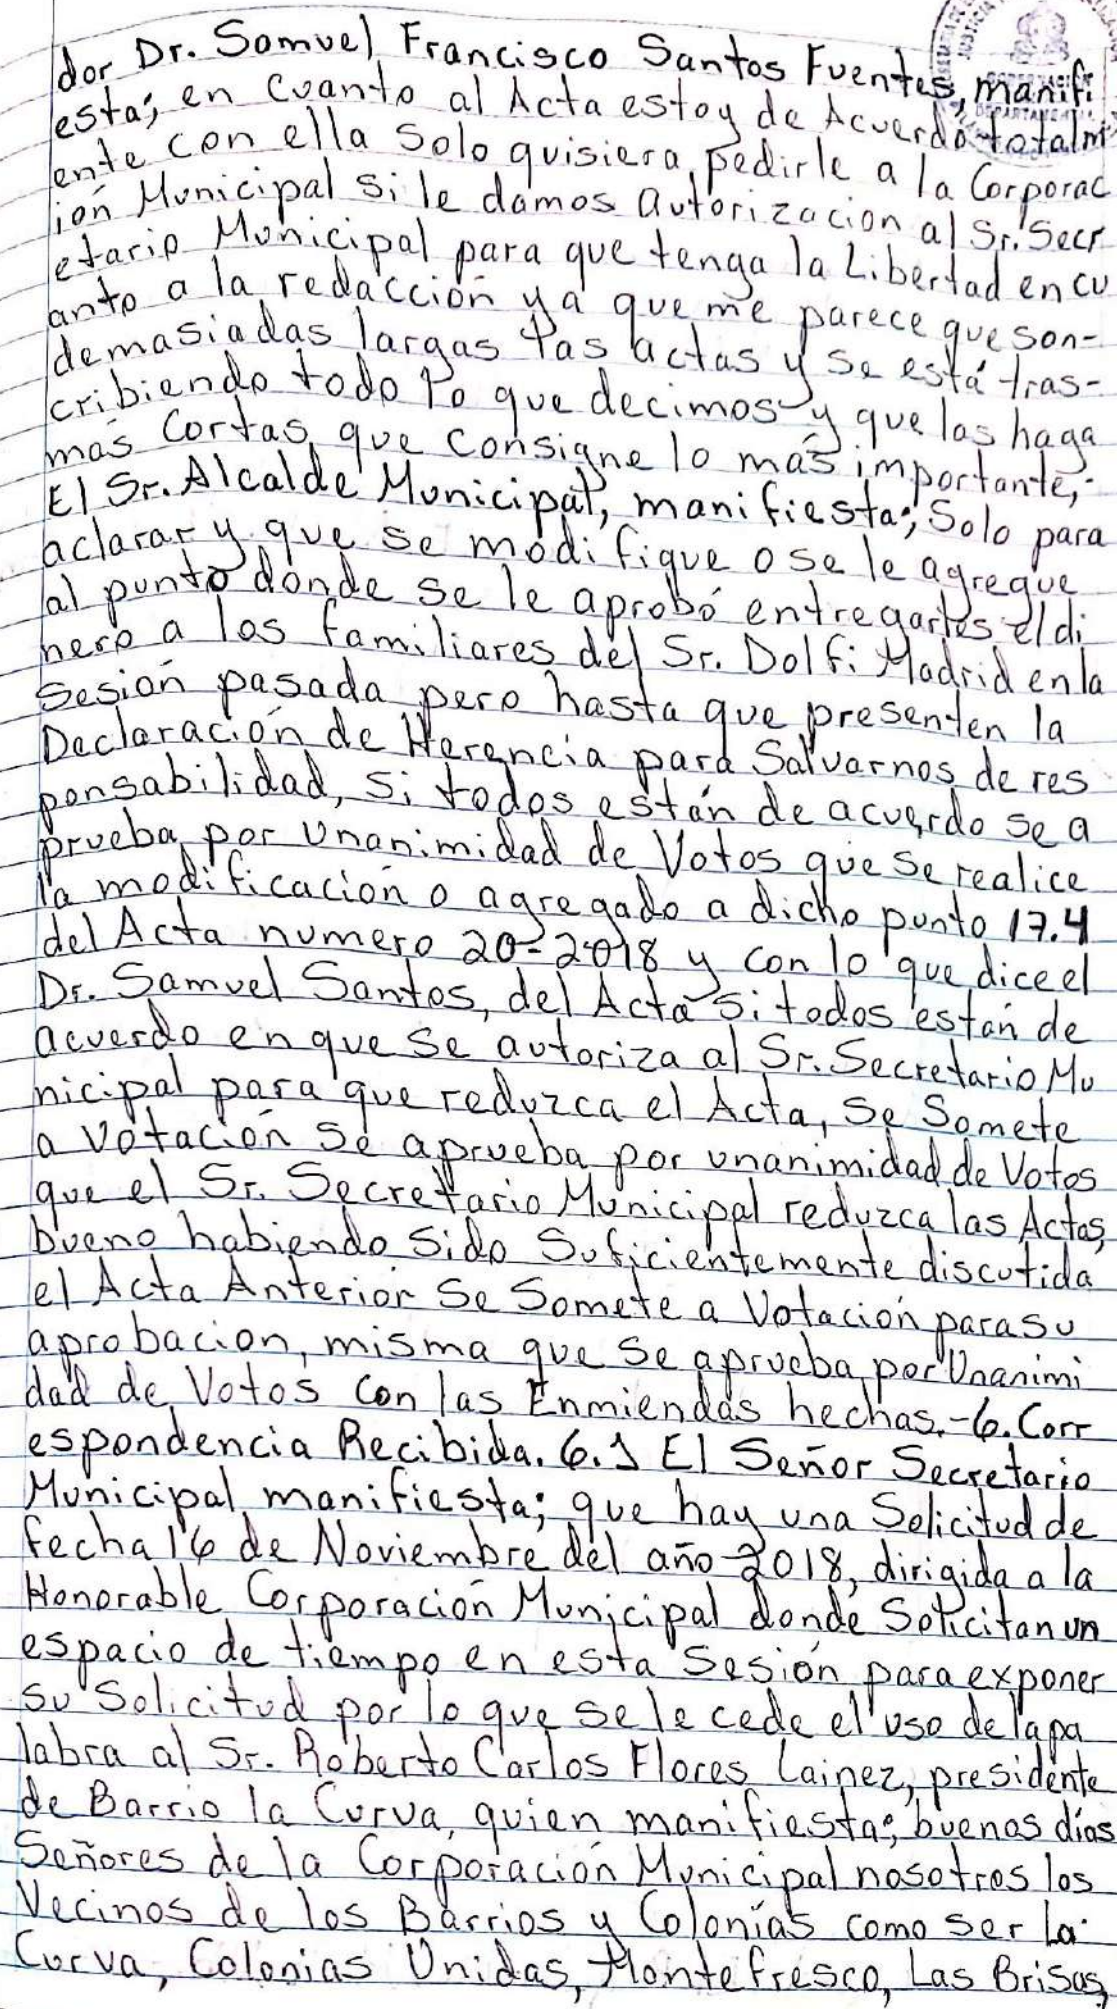 dor Dr. Samuel Francisco Santos Fuentes, manifi
esta; en cuanto al Acta estoy de Acuerdo totalm
ente con ella Solo quisiera pedirle a la Corporac
ión Municipal si le damos autorizacion al Sr. Secr
etario Municipal para que tenga la Libertad en cu
anto a la redacción ya que me parece que son-
demasiadas largas las actas y se está tras-
cribiendo todo lo que decimos y que las haga
más Cortas, que consigne lo más importante,-
El Sr. Alcalde Municipal, manifiesta; Solo para
aclarar y que se modifique o se le agregue
al punto donde se le aprobó entregarles el di
nero a los familiares del Sr. Dolfi Madrid en la
Sesión pasada pero hasta que presenten la
Declaración de Herencia para Salvarnos de res
ponsabilidad, si todos están de acuerdo se a
prueba por Unanimidad de Votos que se realice
la modificación o agregado a dicho punto 17.4
del Acta numero 20-2018 y con lo que dice el
Dr. Samuel Santos, del Acta si todos están de
acuerdo en que se autoriza al Sr. Secretario Mu
nicipal para que reduzca el Acta, se Somete
a Votación se aprueba por unanimidad de Votos
que el Sr. Secretario Municipal reduzca las Actas,
bueno habiendo sido Suficientemente discutida
el Acta Anterior Se Somete a Votación para su
aprobacion, misma que se aprueba por Unanimi
dad de Votos con las Enmiendas hechas.-6. Corr
espondencia Recibida. 6.1 El Señor Secretario
Municipal manifiesta; que hay una Solicitud de
fecha 16 de Noviembre del año 2018, dirigida a la
Honorable Corporación Municipal donde Solicitan un
espacio de tiempo en esta Sesión para exponer
su Solicitud por lo que se le cede el uso de la pa
labra al Sr. Roberto Carlos Flores Lainez, presidente
de Barrio la Curva, quien manifiesta; buenos días
Señores de la Corporación Municipal nosotros los
Vecinos de los Barrios y Colonias como ser La
Curva, Colonias Unidas, Montefresco, Las Brisas,